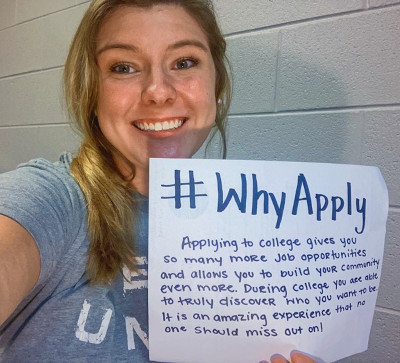 #WhyApply
Applying to college gives you
so many more Job opportunities
and allows you to build your community
even more. During college you are able
to truly discover who you want to be.
It is an amazing experience that no
one should miss out on!
UN